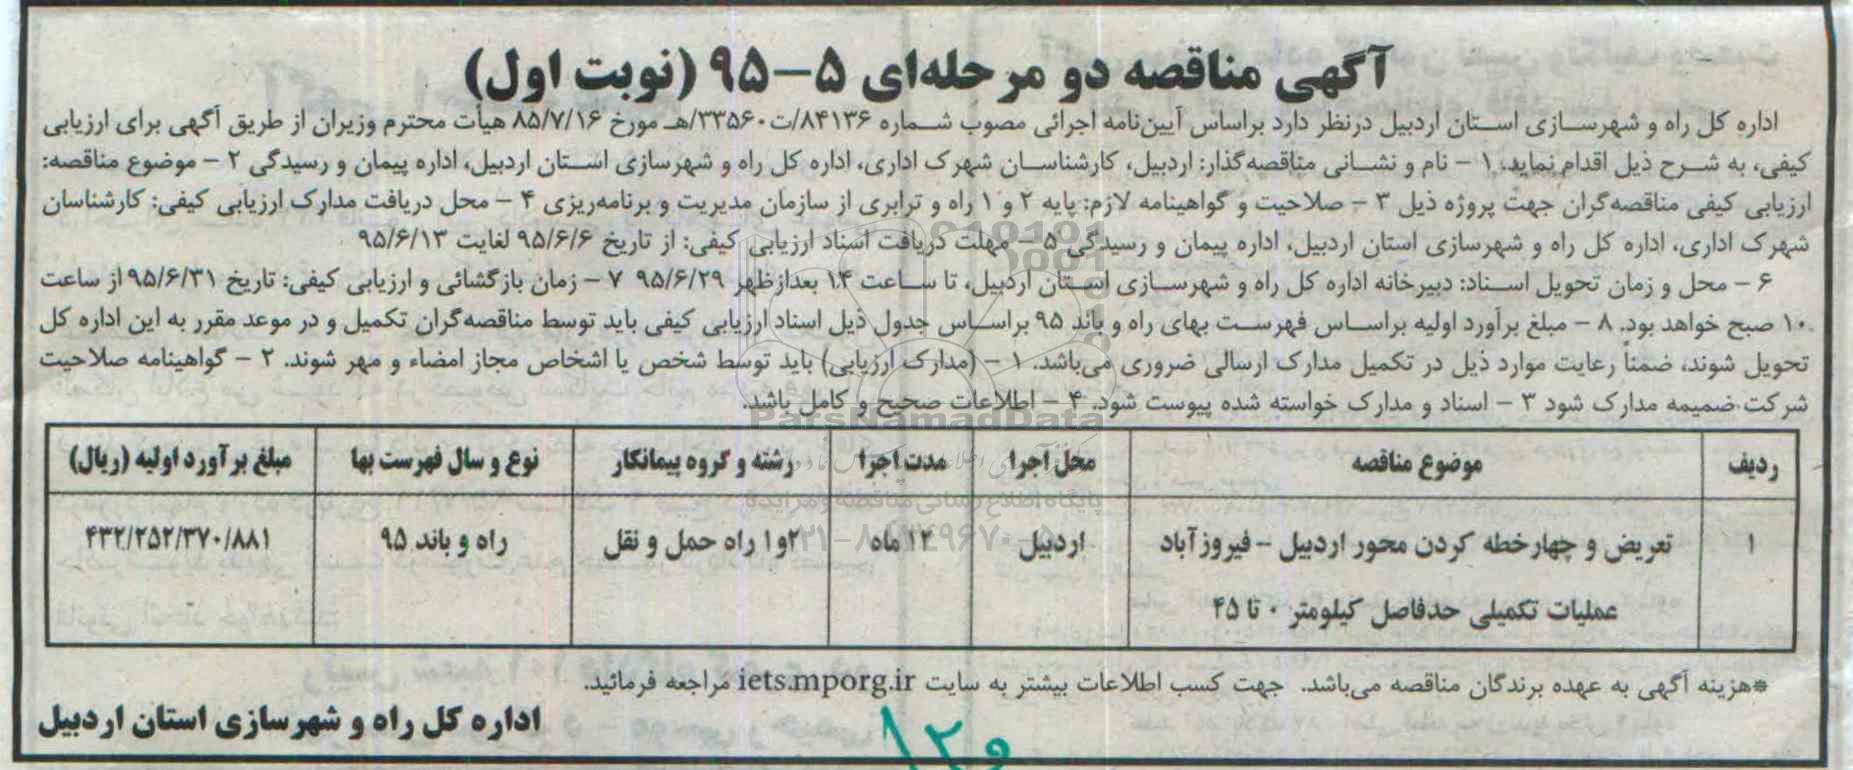 آگهی مناقصه دو مرحله‌ای ۵–۹۵ (نوبت اول)
اداره کل راه و شهرسازی استان اردبیل درنظر دارد براساس آیین‌نامه اجرائی مصوب شماره ۸۴۱۳۶/ت۳۳۵۶۰/هـ مورخ ۸۵/۷/۱۶ هیأت محترم وزیران از طریق آگهی برای ارزیابی
کیفی، به شرح ذیل اقدام نماید. ۱ – نام و نشانی مناقصه‌گذار: اردبیل، کارشناسان شهرک اداری، اداره کل راه و شهرسازی استان اردبیل، اداره پیمان و رسیدگی ۲ – موضوع مناقصه:
ارزیابی کیفی مناقصه‌گران جهت پروژه ذیل ۳ – صلاحیت و گواهینامه لازم: پایه ۲ و ۱ راه و ترابری از سازمان مدیریت و برنامه‌ریزی ۴ – محل دریافت مدارک ارزیابی کیفی: کارشناسان
شهرک اداری، اداره کل راه و شهرسازی استان اردبیل، اداره پیمان و رسیدگی ۵ – مهلت دریافت اسناد ارزیابی کیفی: از تاریخ ۹۵/۶/۶ لغایت ۹۵/۶/۱۳
۶ – محل و زمان تحویل اسناد: دبیرخانه اداره کل راه و شهرسازی استان اردبیل، تا ساعت ۱۴ بعدازظهر ۹۵/۶/۲۹ ۷ – زمان بازگشائی و ارزیابی کیفی: تاریخ ۹۵/۶/۳۱ از ساعت
۱۰ صبح خواهد بود. ۸ – مبلغ برآورد اولیه براساس فهرست بهای راه و باند ۹۵ براساس جدول ذیل اسناد ارزیابی کیفی باید توسط مناقصه‌گران تکمیل و در موعد مقرر به این اداره کل
تحویل شوند، ضمناً رعایت موارد ذیل در تکمیل مدارک ارسالی ضروری می‌باشد. ۱ – (مدارک ارزیابی) باید توسط شخص یا اشخاص مجاز امضاء و مهر شوند. ۲ – گواهینامه صلاحیت
شرکت ضمیمه مدارک شود ۳ – اسناد و مدارک خواسته شده پیوست شود. ۴ – اطلاعات صحیح و کامل باشد.
ParsNamadData
ردیف موضوع مناقصه محل اجرا مدت اجرا رشته و گروه پیمانکار نوع و سال فهرست بها مبلغ برآورد اولیه (ریال)
پایگاه اطلاع رسانی مناقصه و مزایده
۱ تعریض و چهارخطه کردن محور اردبیل – فیروزآباد اردبیل ۱۲ ماه ۲و۱ راه حمل و نقل راه و باند ۹۵ ۴۳۲/۲۵۲/۳۷۰/۸۸۱
عملیات تکمیلی حدفاصل کیلومتر ۰ تا ۴۵
*هزینه آگهی به عهده برندگان مناقصه می‌باشد. جهت کسب اطلاعات بیشتر به سایت iets.mporg.ir مراجعه فرمائید.
اداره کل راه و شهرسازی استان اردبیل